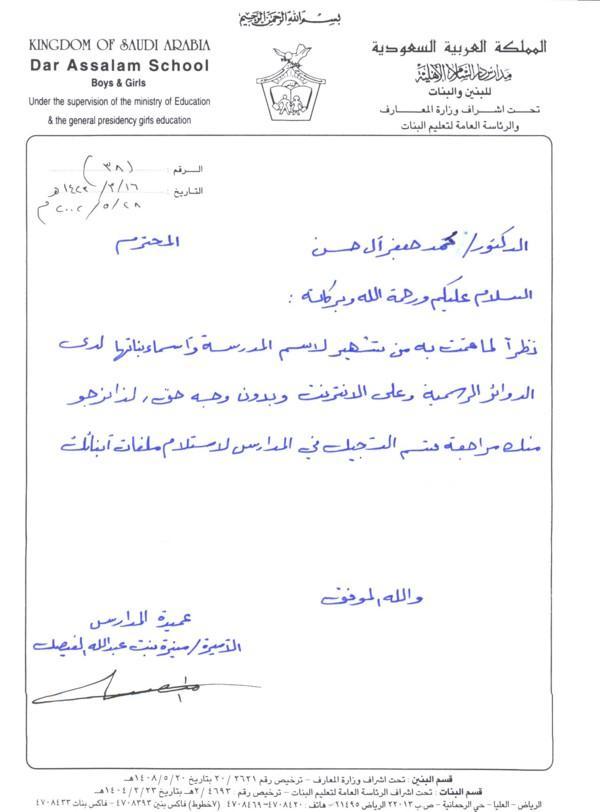 بسم الله الرحمن الرحيم
KINGDOM OF SAUDI ARABIA
Dar Assalam School
Boys & Girls
Under the supervision of the ministry of Education
& the general presidency girls education
المملكة العربية السعودية
مدارس دار السلام الأهلية
للبنين والبنات
تحت اشراف وزارة المعارف
والرئاسة العامة لتعليم البنات
الرقم : (٣٨)
التاريخ : ١٦/٣/١٤٢٣هـ
٢٨/٥/٢٠٠٢م
الدكتور/ محمد جعفر آل حسن المحترم
السلام عليكم ورحمة الله وبركاته :
نظراً لما قمت به من تشهير لاسم المدرسة وأسماء بناتها لدى
الدوائر الرسمية وعلى الانترنت وبدون وجه حق , لذا نرجو
منك مراجعة قسم التسجيل في المدارس لاستلام ملفات أبنائك
والله الموفق
عميدة المدارس
الأميرة/ منيرة بنت عبدالله الفيصل
قسم البنين : تحت اشراف وزارة المعارف - ترخيص رقم : ٢٠/٢٦٢١ بتاريخ ١٤٠٨/٥/٢٠هـ
قسم البنات : تحت اشراف الرئاسة العامة لتعليم البنات - ترخيص رقم : ٢/٤٦٩٣هـ بتاريخ ١٤٠٤/٢/٢٣هـ
الرياض - العليا - حي الرحمانية - ص.ب ٢٢٠١٣ الرياض ١١٤٩٥ - هاتف : ٤٧٠٨٤٢٠ - ٤٧٠٨٤٦٩ (٧خطوط) فاكس بنين ٤٧٠٨٣٩٣ - فاكس بنات ٤٧٠٨٤٣٣